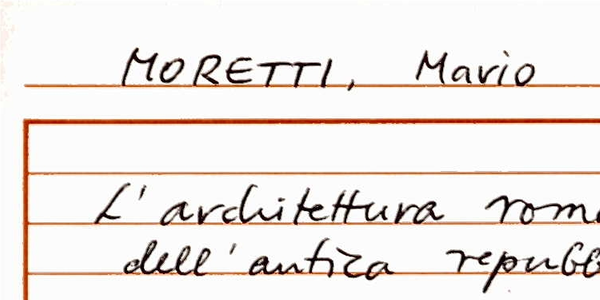 MORETTI, Mario
L'architettura roma
dell'antica repubb